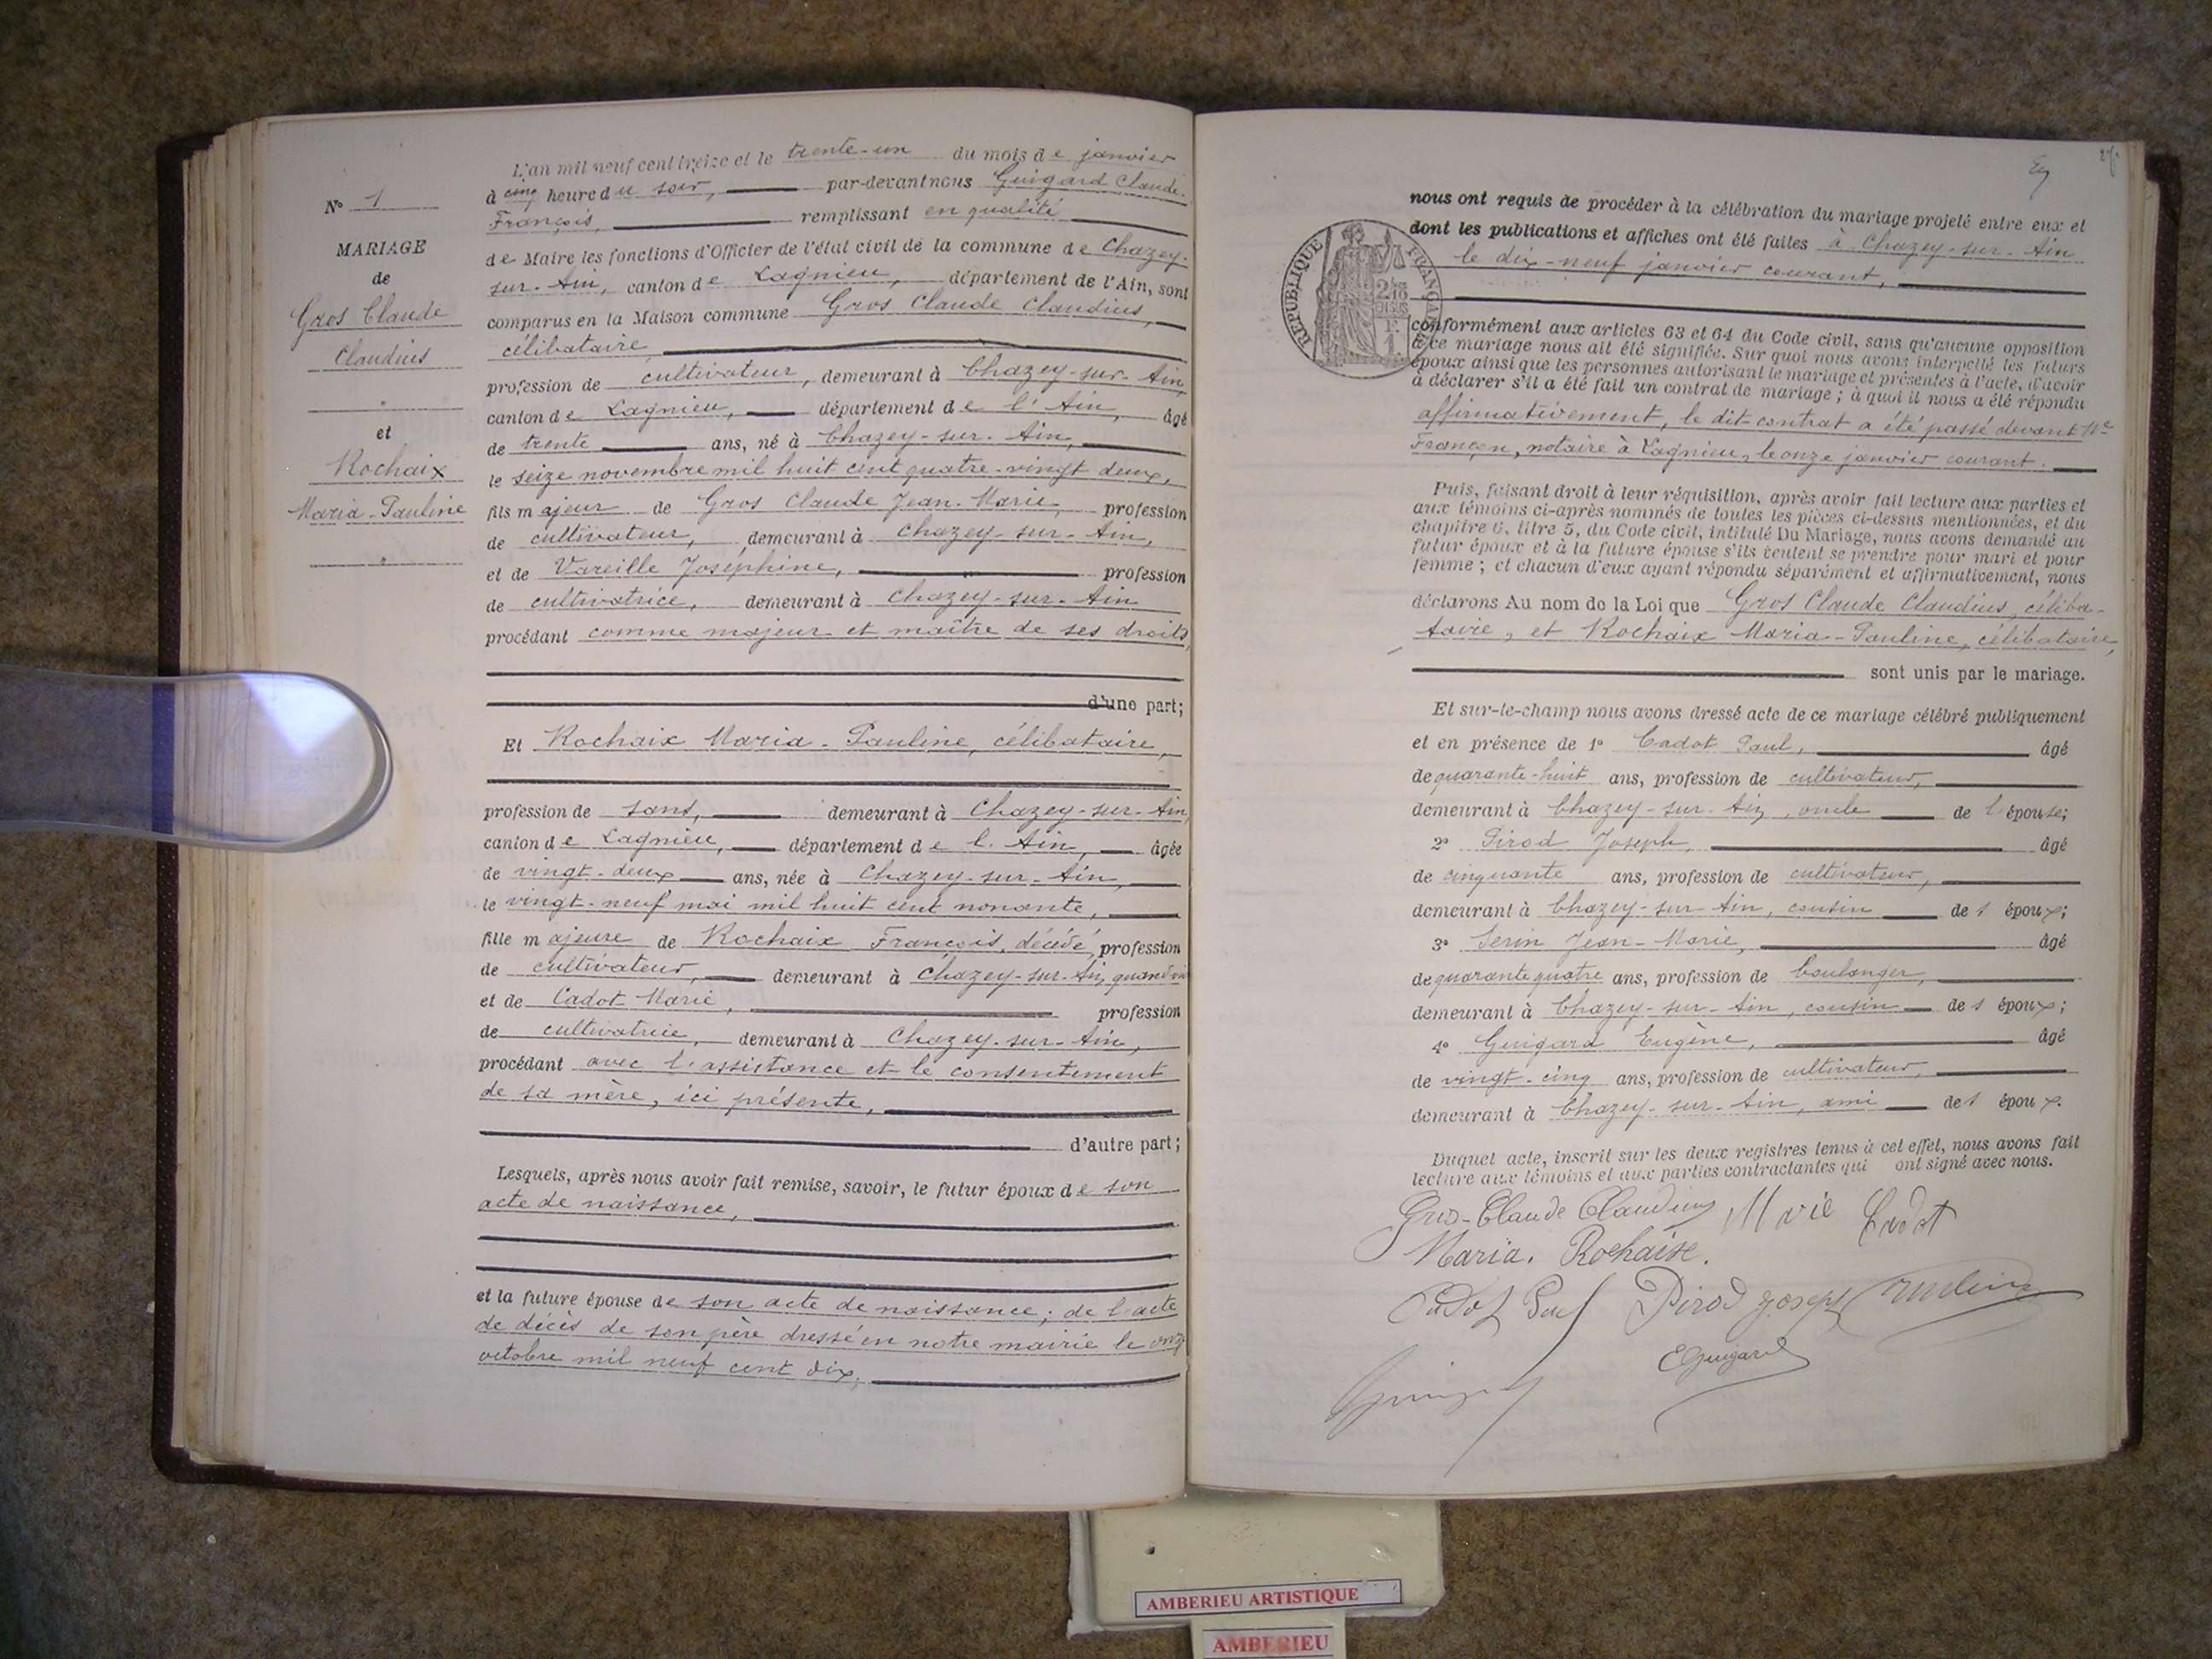 N° 1
MARIAGE
de
Gros Claude
Claudius
et
Rochaix
Maria-Pauline
L'an mil neuf cent treize et le trente-un du mois de janvier
à cinq heure du soir, par-devant nous Guigard Claude-
François, remplissant en qualité
de Maire les fonctions d'Officier de l'état civil de la commune de Chazey-
sur-Ain, canton de Lagnieu, département de l'Ain, sont
comparus en la Maison commune Gros Claude Claudius,
célibataire,
profession de cultivateur, demeurant à Chazey-sur-Ain,
canton de Lagnieu, département de l'Ain, âgé
de trente ans, né à Chazey-sur-Ain,
le seize novembre mil huit cent quatre-vingt deux,
fils majeur de Gros Claude Jean-Marie, profession
de cultivateur, demeurant à Chazey-sur-Ain,
et de Vareille Joséphine, profession
de cultivatrice, demeurant à Chazey-sur-Ain
procédant comme majeur et maître de ses droits,
d'une part;
Et Rochaix Maria-Pauline, célibataire,
profession de sans, demeurant à Chazey-sur-Ain,
canton de Lagnieu, département de l'Ain, âgée
de vingt-deux ans, née à Chazey-sur-Ain,
le vingt-neuf mai mil huit cent nonante,
fille majeure de Rochaix François, décédé, profession
de cultivateur, demeurant à Chazey-sur-Ain, quand
et de Cadot Marie, profession
de cultivatrice, demeurant à Chazey-sur-Ain,
procédant avec l'assistance et le consentement
de sa mère, ici présente,
d'autre part;
Lesquels, après nous avoir fait remise, savoir, le futur époux de son
acte de naissance,
et la future épouse de son acte de naissance; de l'acte
de décès de son père dressé en notre mairie le onze
octobre mil neuf cent dix,
RÉPUBLIQUE FRANÇAISE
nous ont requis de procéder à la célébration du mariage projeté entre eux et
dont les publications et affiches ont été faites à Chazey-sur-Ain
le dix-neuf janvier courant,
conformément aux articles 63 et 64 du Code civil, sans qu'aucune opposition
à ce mariage nous ait été signifiée. Sur quoi nous avons interpellé les futurs
époux ainsi que les personnes autorisant le mariage et présentes à l'acte, d'avoir
à déclarer s'il a été fait un contrat de mariage; à quoi il nous a été répondu
affirmativement, le dit contrat a été passé devant Me
Françon, notaire à Lagnieu, le onze janvier courant.
Puis, faisant droit à leur réquisition, après avoir fait lecture aux parties et
aux témoins ci-après nommés de toutes les pièces ci-dessus mentionnées, et du
chapitre 6, titre 5, du Code civil, intitulé Du Mariage, nous avons demandé au
futur époux et à la future épouse s'ils veulent se prendre pour mari et pour
femme; et chacun d'eux ayant répondu séparément et affirmativement, nous
déclarons Au nom de la Loi que Gros Claude Claudius, céliba-
taire, et Rochaix Maria-Pauline, célibataire,
sont unis par le mariage.
Et sur-le-champ nous avons dressé acte de ce mariage célébré publiquement
et en présence de 1° Cadot Paul, âgé
de quarante-huit ans, profession de cultivateur,
demeurant à Chazey-sur-Ain, oncle de l'épouse;
2° Pirod Joseph, âgé
de cinquante ans, profession de cultivateur,
demeurant à Chazey-sur-Ain, cousin de l'époux;
3° Serin Jean-Marie, âgé
de quarante quatre ans, profession de boulanger,
demeurant à Chazey-sur-Ain, cousin de l'époux;
4° Guigard Eugène, âgé
de vingt-cinq ans, profession de cultivateur,
demeurant à Chazey-sur-Ain, ami de l'époux.
Duquel acte, inscrit sur les deux registres tenus à cet effet, nous avons fait
lecture aux témoins et aux parties contractantes qui ont signé avec nous.
Gros-Claude Claudius Marie Cadot
Maria. Rochaise.
Cadot Paul Pirod Joseph
E Guigard
AMBERIEU ARTISTIQUE
AMBERIEU